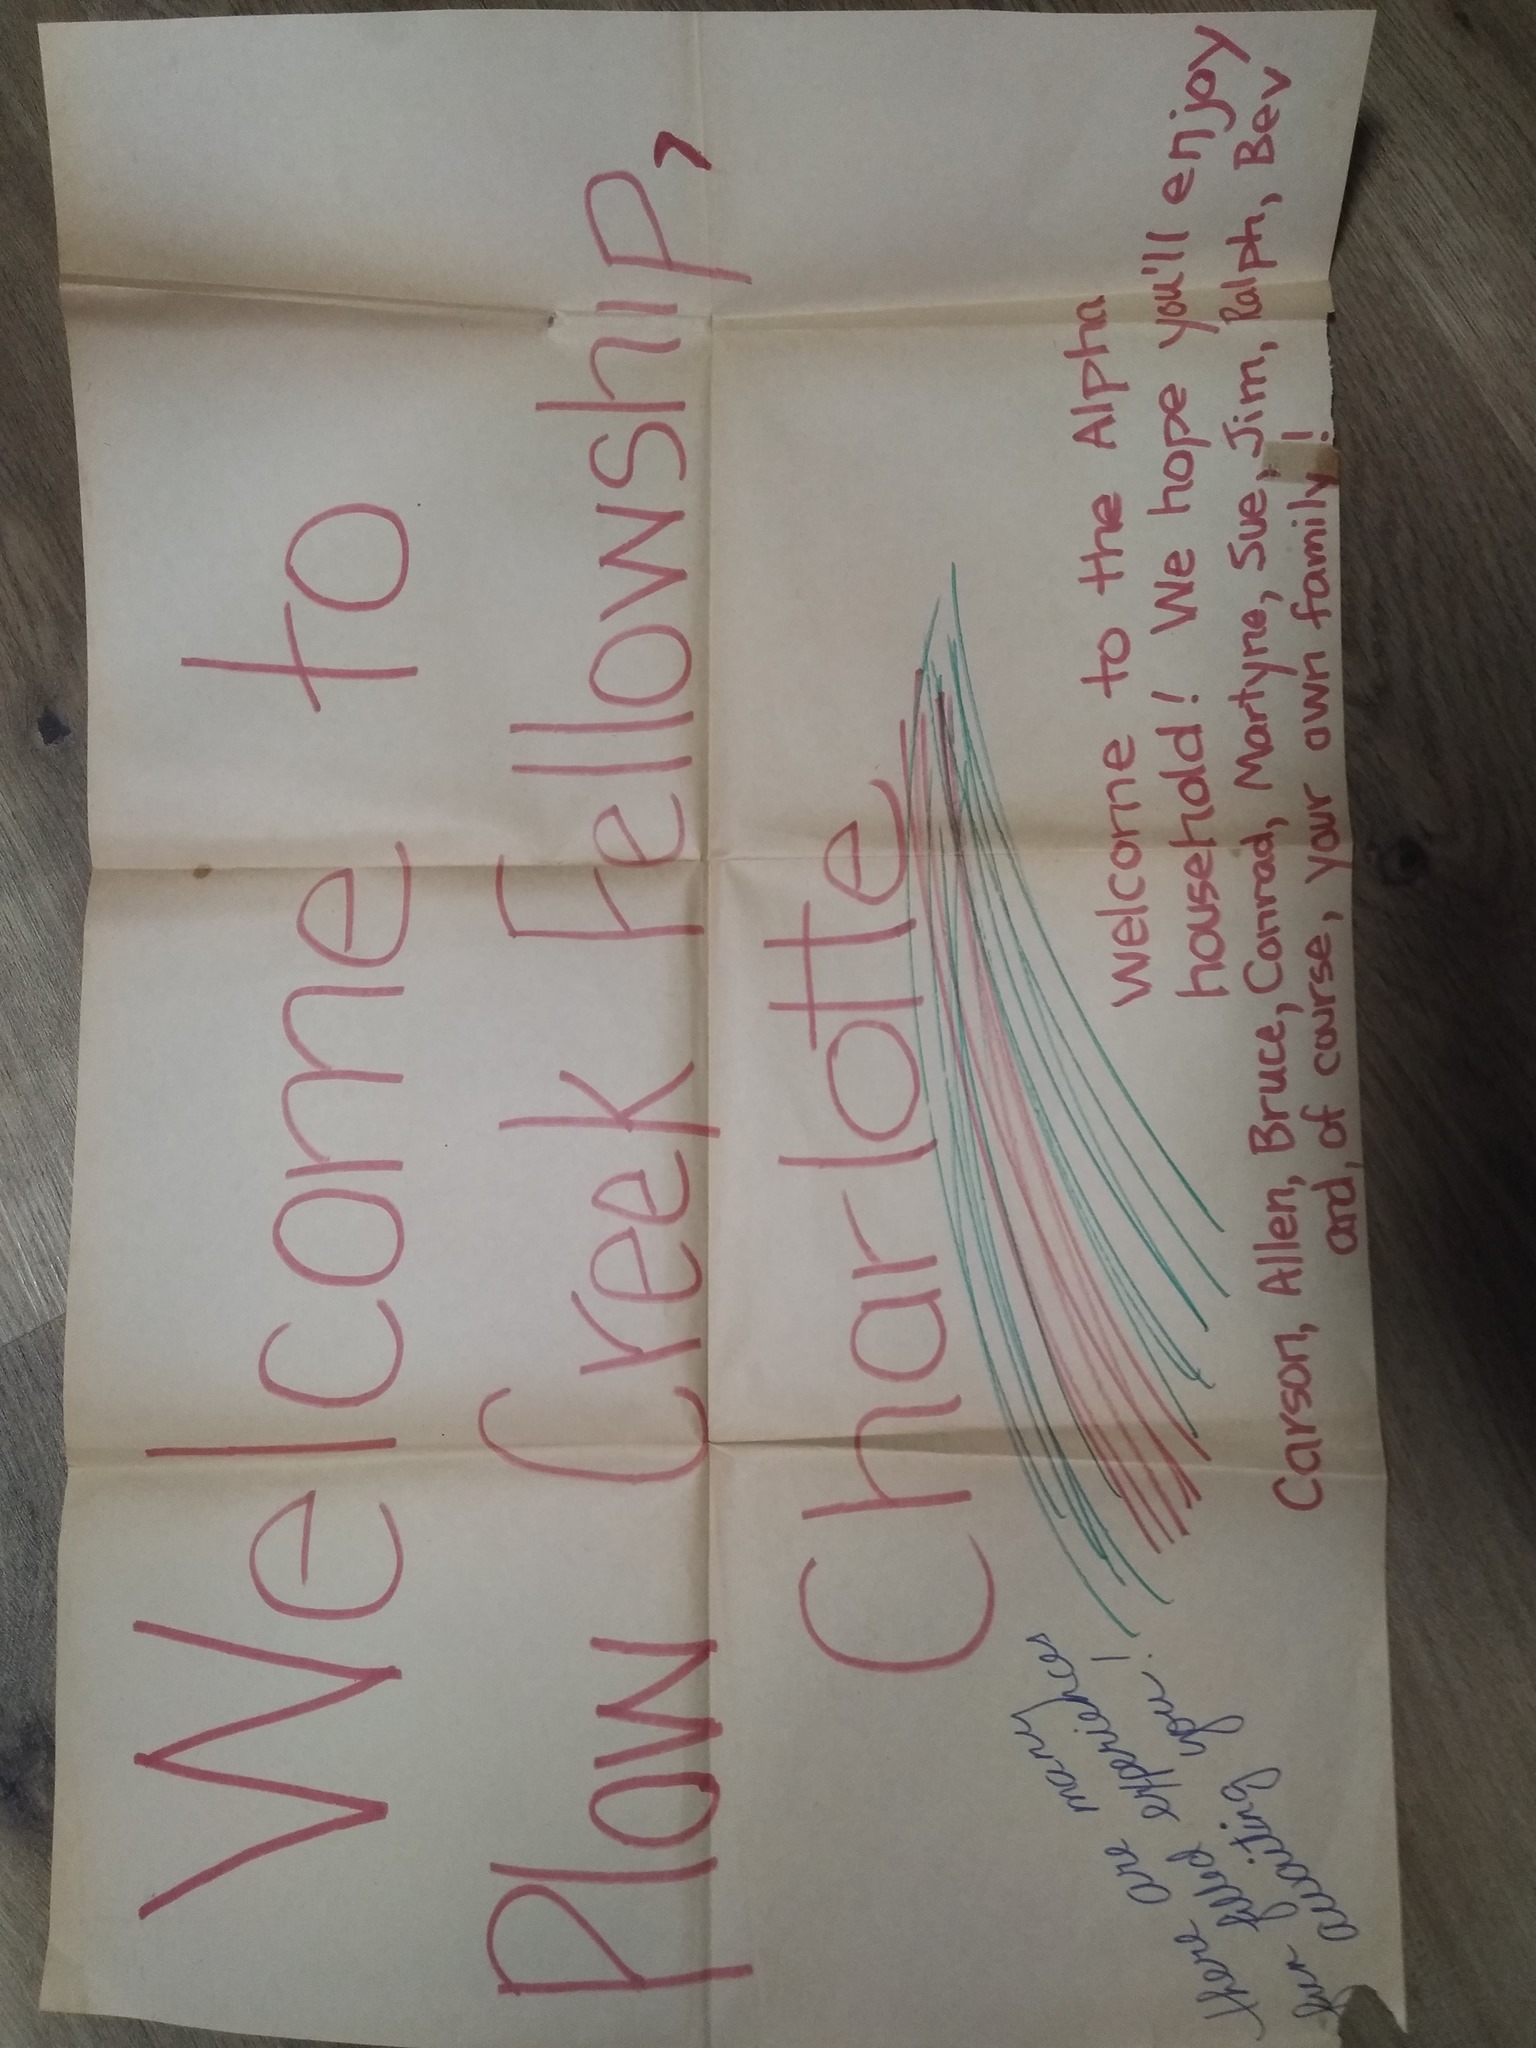 Welcome to
Plow Creek Fellowship,
Charlotte
Welcome to the Alpha
household! We hope you'll enjoy
Carson, Allen, Bruce, Conrad, Martyne, Sue, Jim, Ralph, Bev
and, of course, your own family!
There are many
fun filled experiences
awaiting you!